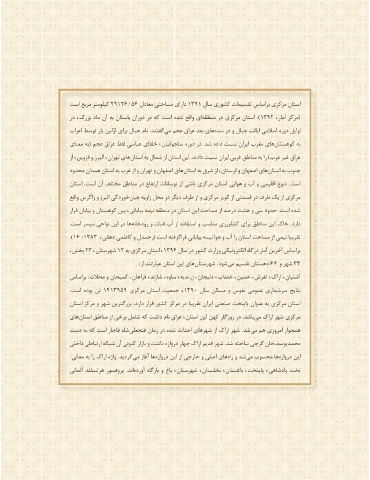 استان مرکزی براساس تقسیمات کشوری سال ۱۳۹۱ دارای مساحتی معادل ۲۹۱۲۶/۵۶ کیلومتر مربع است
(مرکز آمار، ۱۳۹۲). استان مرکزی در منطقه‌ای واقع شده است که در دوران باستان به آن ماد بزرگ، در
اوایل دوره اسلامی ایالت جبال و در سده‌های بعد عراق عجم می‌گفتند. نام جبال برای اولین بار توسط اعراب
به کوهستان‌های مغرب ایران نسبت داده شد. در دوره سلجوقیان، خلفای عباسی لفظ عراق عجم (به معنای
عراق غیر عرب) را به مناطق غربی ایران نسبت دادند. این استان از شمال به استان‌های تهران، البرز و قزوین، از
جنوب به استان‌های اصفهان و لرستان، از شرق به استان‌های اصفهان و تهران و از غرب به استان همدان محدود
است. تنوع اقلیمی و آب و هوایی استان مرکزی ناشی از نوسانات ارتفاع در مناطق مختلف آن است. استان
مرکزی از یک طرف در قسمتی از کویر مرکزی و از طرف دیگر در محل زاویه چین‌خوردگی البرز و زاگرس واقع
شده است. حدود سی و هشت درصد از مساحت این استان در منطقه نیمه بیابانی، بین کوهستان و بیابان قرار
دارد. خاک این مناطق برای کشاورزی مناسب و استفاده از آب قنات و رودخانه‌ها در این نواحی میسر است.
تقریبا نیمی از مساحت استان را آب و هوا نیمه بیابانی فراگرفته است (رحمدل و کاظمی دهقی، ۱۳۸۳: ۱۶).
براساس آخرین آمار درگاه الکترونیکی وزارت کشور در سال ۱۳۹۴ استان مرکزی به ۱۲ شهرستان، ۲۳ بخش،
۳۳ شهر و ۶۶ دهستان تقسیم می‌شود. شهرستان‌های این استان عبارتند از:
آشتیان، اراک، تفرش، خمین، خنداب، دلیجان، زرندیه، ساوه، شازند، فراهان، کمیجان و محلات. براساس
نتایج سرشماری عمومی نفوس و مسکن سال ۱۳۹۰، جمعیت استان مرکزی ۱۴۱۳۹۵۹ تن بوده است.
استان مرکزی به عنوان پایتخت صنعتی ایران تقریبا در مرکز کشور قرار دارد. بزرگترین شهر و مرکز استان
مرکزی شهر اراک می‌باشد. در روزگار کهن این استان، عراق نام داشت که شامل برخی از مناطق استان‌های
همجوار امروزی هم می‌شد. شهر اراک از شهرهای احداث شده در زمان فتحعلی‌شاه قاجار است که به دست
محمدیوسف‌خان گرجی ساخته شد. شهر قدیم اراک چهار دروازه داشت و بازار کنونی آن شبکه ارتباطی داخلی
این دروازه‌ها محسوب می‌شد و راه‌های اصلی و خارجی از این دروازه‌ها آغاز می‌گردید. واژه اراک را به معانی:
تخت پادشاهی، پایتخت، باغستان، نخلستان، شهرستان، باغ و بارگاه آورده‌اند. پروفسور هرتسفلد آلمانی